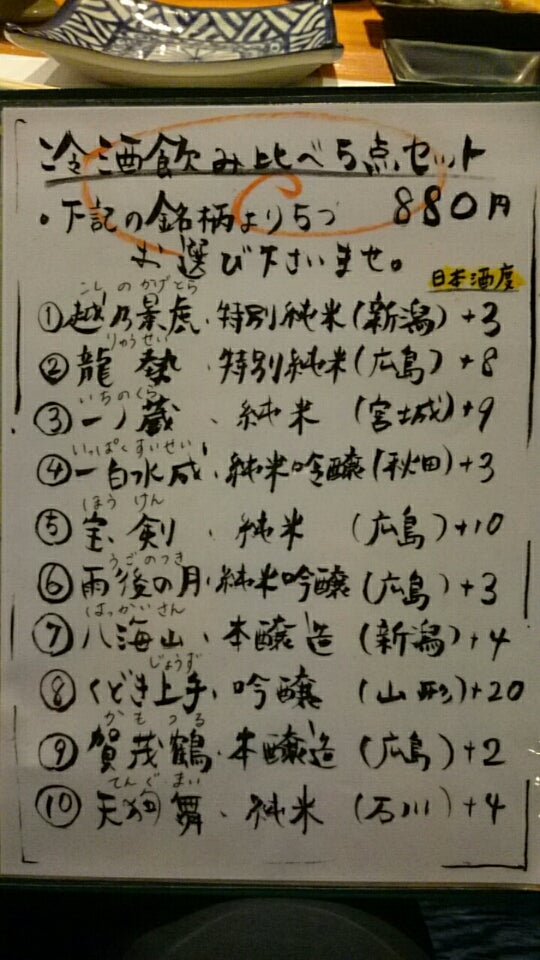 冷酒飲み比べ5点セット
・下記の銘柄より5つ 880円
お選び下さいませ。
日本酒度
こしのかげとら
①越乃景虎、特別純米(新潟)+3
りゅうせい
②龍勢 特別純米(広島)+8
いちのくら
③一ノ蔵、純米(宮城)+9
いっぱくすいせい
④一白水成、純米吟醸(秋田)+3
ほうけん
⑤宝剣、純米(広島)+10
うごのつき
⑥雨後の月、純米吟醸(広島)+3
はっかいさん
⑦八海山、本醸造(新潟)+4
じょうず
⑧くどき上手、吟醸(山形)+20
かもつる
⑨賀茂鶴、本醸造(広島)+2
てんぐまい
⑩天狗舞、純米(石川)+4